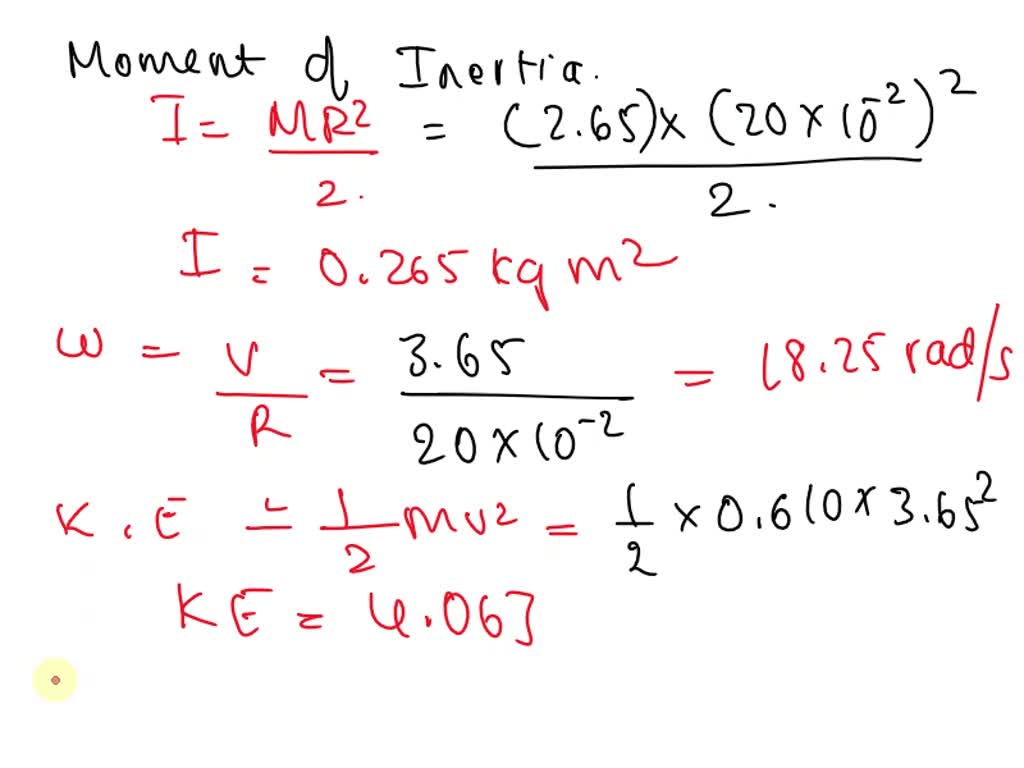 Moment of Inertia.
I = MR²/2. = (2.65)×(20×10⁻²)²/2.
I = 0.265 kg m²
ω = V/R = 3.65/20×10⁻² = 18.25 rad/s
K.E = 1/2 mv² = 1/2 × 0.610 × 3.65²
KE = 4.06J